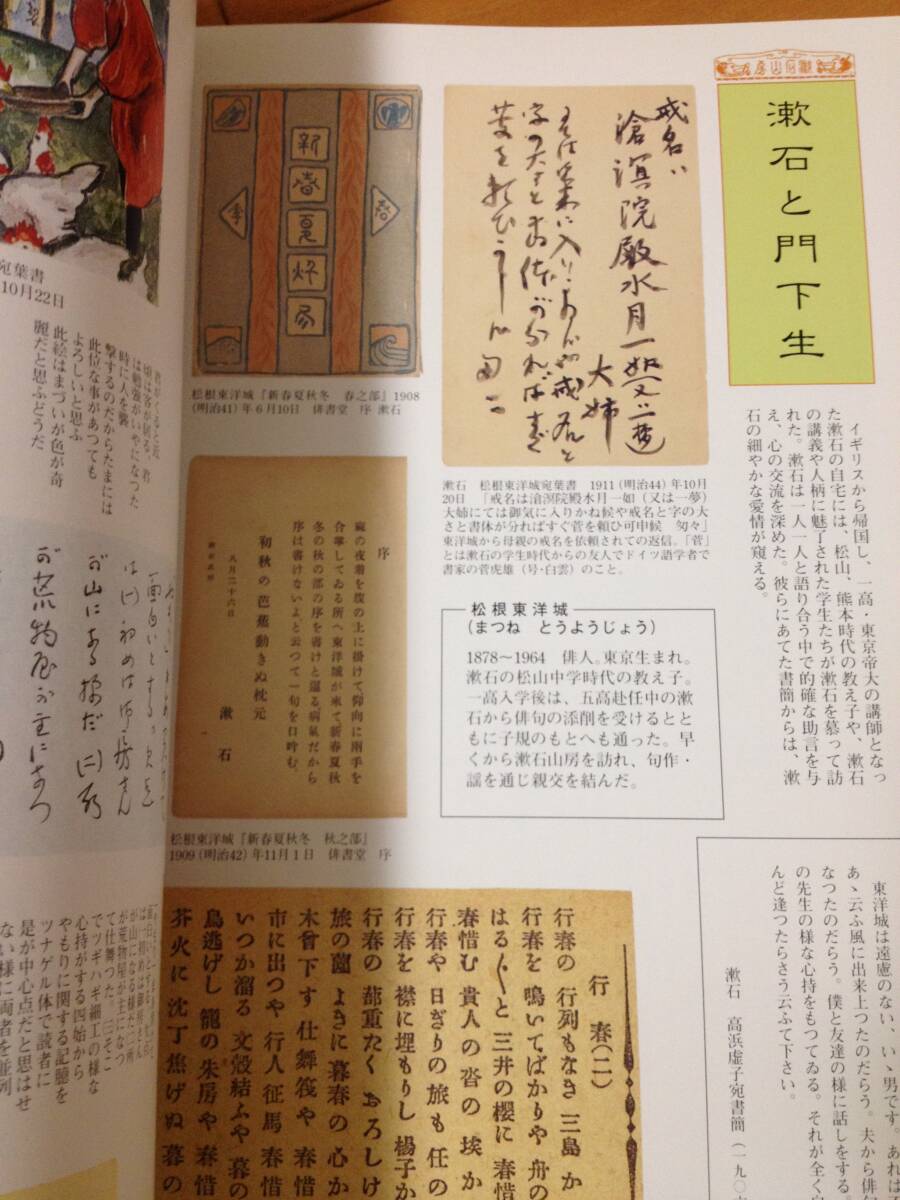 漱石と門下生
イギリスから帰国し、一高・東京帝大の講師となっ
た漱石の自宅には、松山、熊本時代の教え子や、漱石
の講義や人柄に魅了された学生たちが漱石を慕って訪
れた。漱石は一人一人と語り合う中で的確な助言を与
え、心の交流を深めた。彼らにあてた書簡からは、漱
石の細やかな愛情が窺える。
戒名は
滄溟院殿水月一如
大姉
漱石 松根東洋城宛葉書 1911(明治44)年10月
20日 「戒名は滄溟院殿水月一如(又は一夢)
大姉にては御気に入りかね候や戒名と字の大
さと書体が分ればすぐ菅を頼ひ可申候 匆々」
東洋城から母親の戒名を依頼されての返信。「菅」
とは漱石の学生時代からの友人でドイツ語学者で
書家の菅虎雄(号・白雲)のこと。
新春夏秋冬
松根東洋城『新春夏秋冬 春之部』1908
(明治41)年6月10日 俳書堂 序 漱石
松根東洋城
(まつね とうようじょう)
1878〜1964 俳人。東京生まれ。
漱石の松山中学時代の教え子。
一高入学後は、五高赴任中の漱
石から俳句の添削を受けるとと
もに子規のもとへも通った。早
くから漱石山房を訪れ、句作・
謡を通じ親交を結んだ。
序
夜着を掛けて仰向に両手を
合掌してゐる所へ東洋城が来て新春夏秋
冬の秋の部の序を書けと逼る病気だから
序は書けないよと云つて一句を口吟む。
初秋の芭蕉動きぬ枕元
八月二十六日
漱石
松根東洋城『新春夏秋冬 秋之部』
1909(明治42)年11月1日 俳書堂 序
東洋城は遠慮のない、いゝ男です。あれは
あゝ云ふ風に出来上つたのだらう。夫から俳
なつたのだらう。僕と友達の様に話しをする
の先生の様な心持をもつてゐる。それが全く
んど逢つたらさう云ふて下さい。
漱石 高浜虚子宛書簡(一九〇
行春(二)
行春の行列もなき三島か
行春を鳴いてばかりや舟の
はる〲と三井の櫻に春惜
春惜む貴人の沓の埃か
行春や日ぎりの旅も任の
行春を襟に埋もりし楊子か
行春の蔀重たくおろしけ
旅の菌よきに暮春の心か
木曾下す仕舞筏や春惜
市に出つや行人征馬春惜
いつか溜る文殻結ふや暮の
鳥逃げし籠の朱房や春惜
芥火に沈丁焦げぬ暮の
宛葉書
10月22日
君がくると近
頃は客が居る。君
は勉強がいやになつた
時に人を襲
撃するのだからたまには
此位な事があつても
よろしいと思ふ
此絵はまづいが色が奇
麗だと思ふどうだ
の山にある様だ(二)所
の荒物屋が主になつ
が山になる様だ(二)所
が荒物屋が主になつ
て仕舞つた。(三)そこ
でツギハギ細工の様な
心持がする四始から
やもりに関する記臆を
ツナゲル体で読者に
是が中心点だと思はせ
ない様に両者を並列